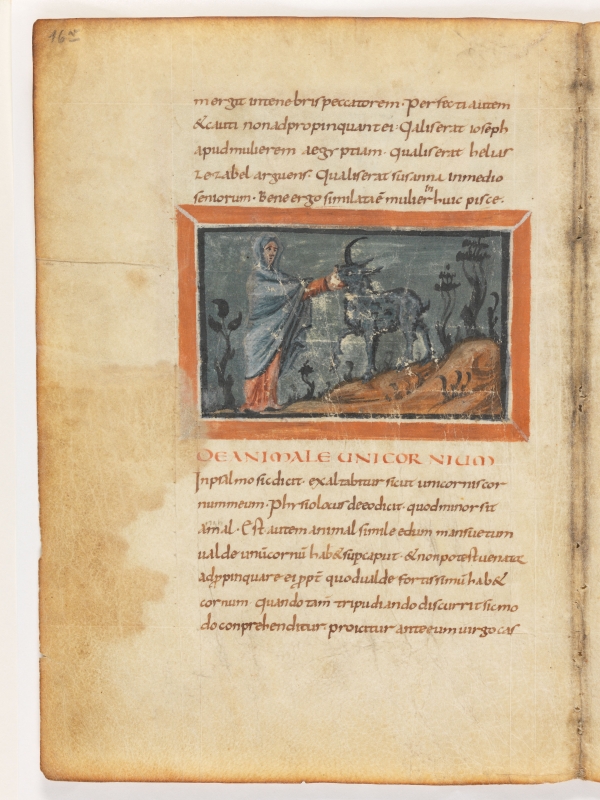 16v
mergit in tenebris peccatorem · Perfecti autem
& cauti non adpropinquant ei · Qaliserat ioseph
apud mulierem aegyptiam · Qualiserat helias
zezabel arguens · Qualiserat susanna in medio
seniorum · Bene ergo similata ē mulier huic pisce ·
in
DE ANIMALE UNICORNIUM
In psalmo sic dicit · exaltabitur sicut unicornis cor
num meum · Physiolocus de eo dicit · quod minor sit
animal · Est autem animal simile edum mansuetum
ualde unū cornū hab& sup caput · & non potest uenator
adppinquare · ei ppt̄ quod ualde fortissimū hab&
cornum quando tam̄ tripudiando discurrit sic mo
do conprehenditur · proicitur ante eum uirgo cas